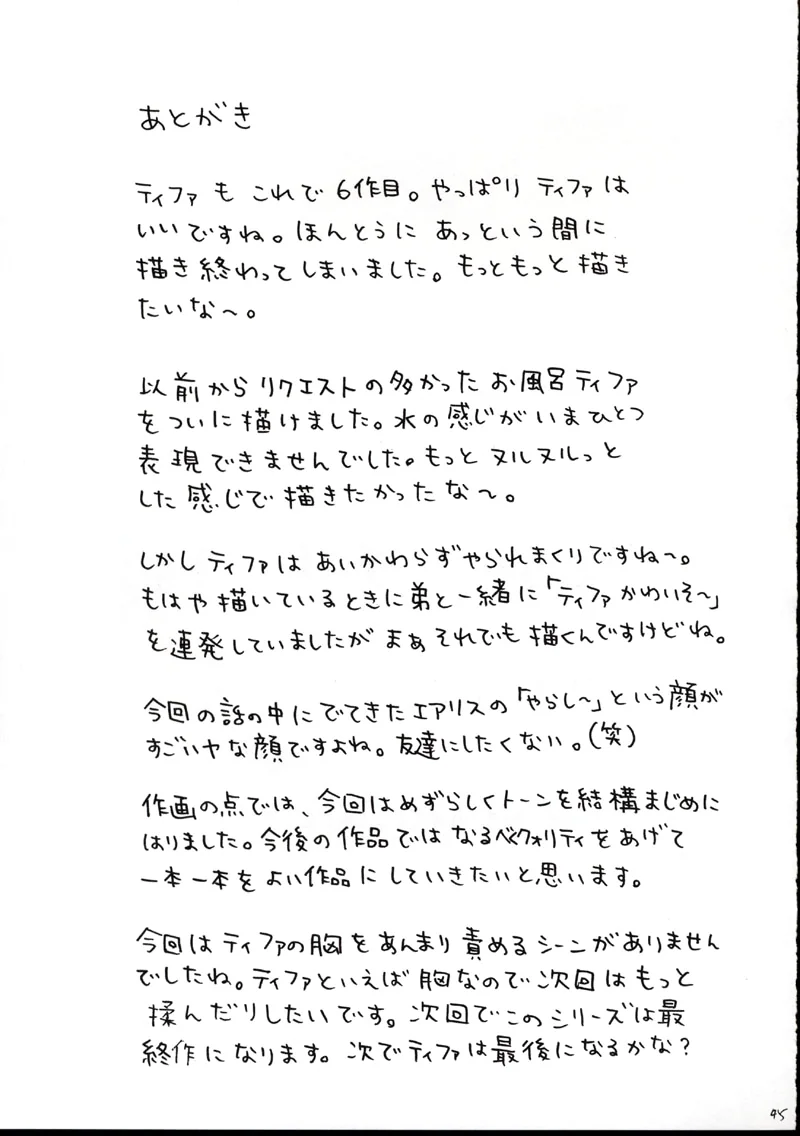 あとがき
ティファも これで 6作目。やっぱり ティファは
いいですね。ほんとうに あっという間に
描き終わってしまいました。もっともっと描き
たいな〜。
以前からリクエストの多かった お風呂ティファ
をついに描けました。水の感じがいまひとつ
表現できませんでした。もっと ヌルヌルっと
した感じで描きたかったな〜。
しかしティファは あいかわらずやられまくりですね〜。
もはや描いているときに弟と一緒に「ティファかわいそ〜」
を連発していましたが まぁそれでも描くんですけどね。
今回の話の中にでてきたエアリスの「やらし〜」という顔が
すごいヤな顔ですよね。友達にしたくない。(笑)
作画の点では、今回はめずらしくトーンを結構まじめに
はりました。今後の作品では なるべくクォリティをあげて
一本一本をよい作品にしていきたいと思います。
今回はティファの胸をあんまり責めるシーンがありません
でしたね。ティファといえば胸なので次回はもっと
揉んだりしたいです。次回でこのシリーズは最
終作になります。次でティファは最後になるかな?
45